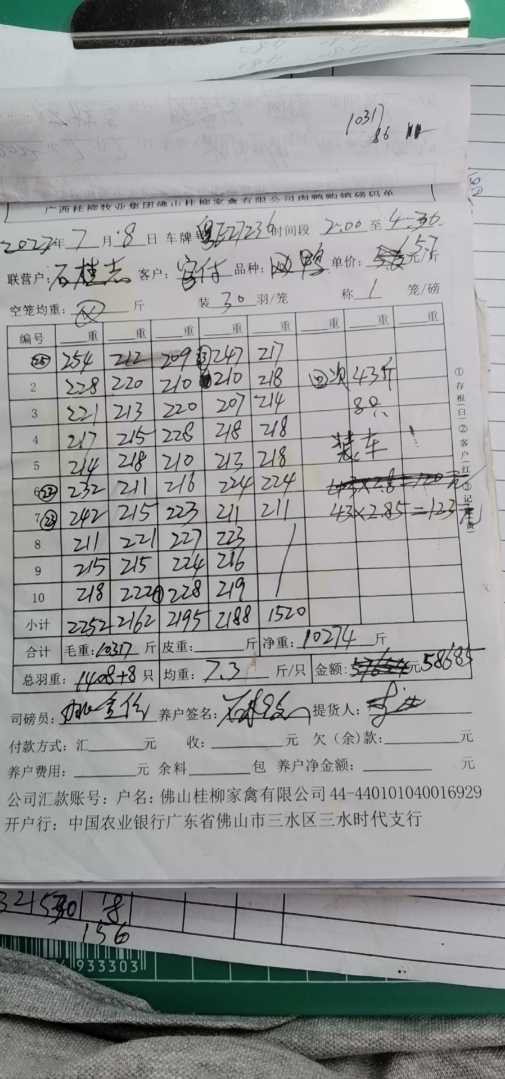 10317
86
广西桂柳牧业集团佛山桂柳家禽有限公司肉鸭购销磅码单
2023年 7 月 8 日 车牌 粤E27236 时间段 2:00 至 4:36
联营户: 石桂志 客户: 客付 品种: 鸭 单价: 5.7 元/斤
空笼均重: 斤 装 30 羽/笼 称 1 笼/磅
编号 重 重 重 重 重 重 重 重
254 212 209 247 217
2 228 220 210 210 218 次 43斤
3 221 213 220 207 214 8只
4 217 215 228 218 218 装车
5 214 218 210 213 218
6 232 211 216 224 224 43×2.8=120元
7 242 215 223 211 211 43×2.85=123元
8 211 221 227 223
9 215 215 224 216
10 218 222 228 219
小计 2252 2162 2195 2188 1520
合计 毛重: 10317 斤 皮重: 斤 净重: 10274 斤
总羽重: 1408+8 只 均重: 7.3 斤/只 金额: 元 58685
司磅员: 养户签名: 提货人:
付款方式: 汇 元 收: 元 欠(余)款: 元
养户费用: 元 余料 包 养户净金额: 元
公司汇款账号: 户名: 佛山桂柳家禽有限公司 44-440101040016929
开户行: 中国农业银行广东省佛山市三水区三水时代支行
①存根(白)②客户(红)③记
156
933303